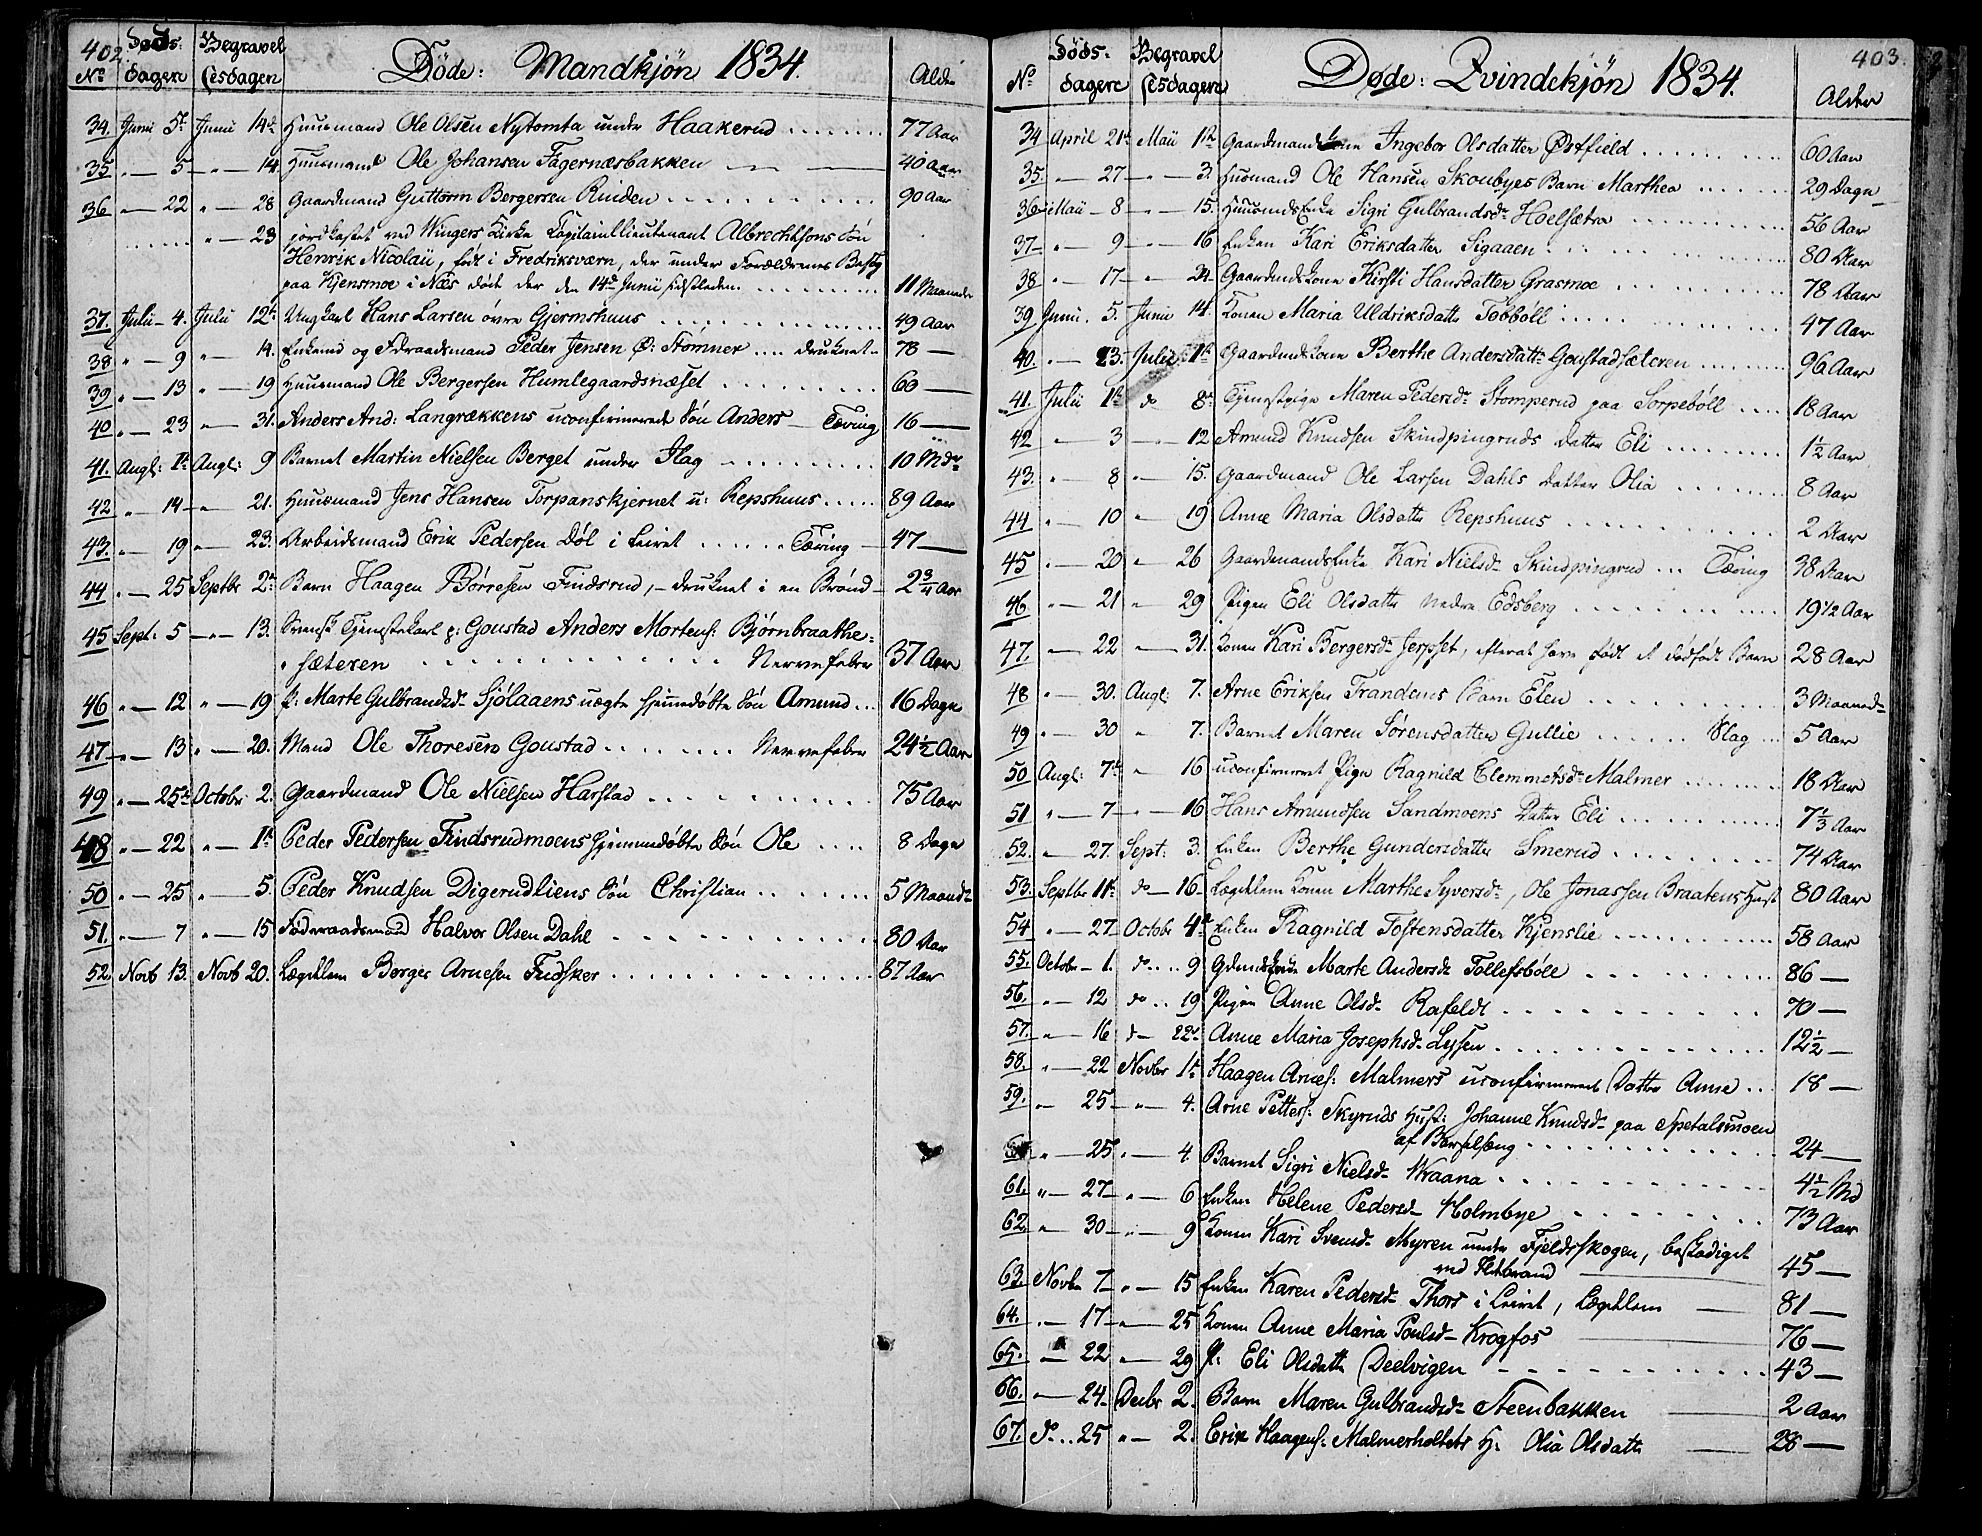 402.
Døde: Mandkjön 1834.
No Døds- dagen Begravel- sesdagen Alder
34. Junii 5te Junii 14de Huusmand Ole Olsen Nytomta under Haakerud 77 Aar
35 " — 5 — " — 14 Huusmand Ole Johansen Fagernæsbakken 40 Aar
36 " — 22 " — 28 Gaardmand Guttorm Bergersen Runden 90 Aar
" — 23 jordkastet ved Wingers Kirke Capitainlieutenant Albrechtsons Sön
Henrik Nicolai, født i Fredriksværn, der under Forældrenes Besøg
paa Kjensmoe i Næs døde der den 14de Junii sidstleden. 11 Maaneder
37. Julii - 4. Julii 12te Ungkarl Hans Larsen øvre Gjermshuus 49 Aar
38 " — 9 " — 14. Enkemd og Föderaadsmand Peder Jensen Ø: Stømner .... druknet 78 —
39 " — 13 " — 19 Huusmand Ole Bergersen Humlegaardsnæset 60 —
40 " — 23 " — 31. Anders And: Langrækkens uconfirmerede Sön Anders — Tæring 16 —
41. Augs: 1te Augs: 9 Barnet Martin Nielsen Berget under Slag 10 Mdr
42 " — 14 — " — 21. Huusmand Jens Hansen Torpanskjernet u: Repshuus 89 Aar
43. " — 19 " — 23. Arbeidsmand Erik Pedersen Döl i Leiret Tæring 47 —
44 " — 25 Septbr 2den Barn Haagen Børresen Findsrud, — druknet i en Brønd 2¾ Aar
45 Sept: 5 — " — 13. Svensk Tjenestekarl p: Goustad Anders Mortens: Bjørnbraathe-
sæteren Nervefeber 37 Aar
46 " — 12 " — 19 P: Marte Gulbrandsd- Sjölaaens uægte hjemmedøbte Sön Amund 16 Dage
47 " — 13 " — 20. Mand Ole Thoresen Goustad Nervefeber 24½ Aar
49 " — 25de Octobr 2. Gaardmand Ole Nielsen Harstad 75 Aar
48 " — 22 " — 1te Peder Pedersen Findsrudmoens hjemmedøbte Sön Ole 8 Dage
50 " — 25 " — 5. Peder Knudsen Digerudliens Sön Christian 5 Maaneder
51. " — 7 " — 15 Föderaadsmand Halvor Olsen Dahl 80 Aar
52. Novb 13. Novb 20. Lægdslem Borger Arnesen Fudsker 87 Aar
403.
Døde: Qvindekjön 1834.
No Døds- dagen Begravel- sesdagen Alder
34 April 21de Maii 1te Gaardmandskone Ingebor Olsdatter Østfield 60 Aar
35. " — 27 — " — 3. Huusmand Ole Hansen Skoubyes Barn Marthea 29 Dage
36 Maii — 8 " — 15. Huusmdsenke Sigri Gulbrandsd- Hoelsætra 56 Aar
37 " — 9 " — 16 Enken Kari Eriksdatter Sigaaen 80 Aar
38 " — 17 — " 24 Gaardmdskone Kirsti Hansdatter Grasmoe 78 Aar
39 Junii. 5. Junii 14. Konen Maria Uldriksdatter Tobböll 47 Aar
40. " — 23. Julii 1te Gaardmdskone Berthe Andersdatt- Goustadsæteren 96 Aar
41. Julii 1te do 8de Tjenestpige Maren Pedersd- Stomperud paa Sorpeböll 18 Aar
42 " — 3 — " — 12 Amund Knudsen Skindpingruds Datter Eli 1½ Aar
43. " — 8 " — 15. Gaardmand Ole Larsen Dahls Datter Olia 8 Aar
44 " — 10 " — 19 Anne Maria Olsdatter Repshuus 2 Aar
45 " — 20 " — 26 Gaardmandsenke Kari Nielsd- Skindpingrud ... Tæring 38 Aar
46. " — 21 " 29 Pigen Eli Olsdatter nedre Edsberg 19½ Aar
47. " — 22 " — 31. Konen Kari Bergersd- Jerpset, efterat have født et dødfødt Barn 28 Aar
48 " — 30. Augs: 7. Arne Eriksen Trandems Barn Elen 3 Maaned-
49 " — 30 " 7. Barnet Maren Sörensdatter Gullie Slag 5 Aar
50 Augs: 7de " 16 uconfirmeret Pige Ragnild Clemmetsd- Malmer 18 Aar
51 " — 7 — " — 16 Hans Amundsen Sandmoens Datter Eli 7⅓ Aar
52. " — 27. Sept: 3. Enken Berthe Gundersdatter Smerud 74 Aar
53. Septbr 11te do — 16 Lægdslem Konen Marthe Syversd-, Ole Jonassen Braatens Hust 80 Aar
54 " — 27 Octobr 4de Enken Ragnild Tostensdatter Kjenslie 58 Aar
55. Octobr - 1. do .. 9 Gdmdskone Marte Andersd- Tollefsböll 86 —
56. " — 12 do .. 19 Pigen Anne Olsd- Rafeldt 70 —
57. " — 16 d— 22de Anne Maria Josephsd- Lysen 12½ —
58. " — 22 Novbr 1te Haagen Arnes: Malmers uconfirmeret Datter Anne 18 —
59. " — 25 — " — 4. Arne Petters: Skyruds Hust: Johanne Knudsd- paa Spetalsmoen
af Barselseng 24 —
60 " — 25 " — 4. Barnet Sigri Nielsd- Wraana 4½ Md
61. " — 27 — " — 6 Enken Helene Pedersd- Holmbye 73 Aar
62. " — 30 — " — 9 Konen Kari Svensd- Myren under Fjeldskogen, beskadiget
ved Ildebrand 45 —
63. Novbr 7 — " — 15 Enken Karen Pedersd- Thors i Leiret, Lægdslem 81 —
64. " — 17 — " — 25 Konen Anne Maria Poulsd- Krogfos 76 —
65. — 22 " — 29 P: Eli Olsdatter Deelvigen 43 —
66. " — 24 Decbr 2. Barn Maren Gulbrandsd- Steenbakken 2 Aar
67. do .. 25 " — 2. Erik Haagens: Malmerholtets H: Olia Olsdatter 28 —